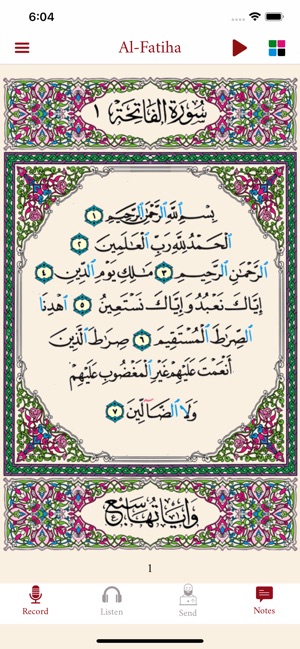 6:04
Al-Fatiha
سُورَةُ الفَاتِحَةِ ١
بِسْمِ اللَّهِ الرَّحْمَٰنِ الرَّحِيمِ ١
الْحَمْدُ لِلَّهِ رَبِّ الْعَالَمِينَ ٢
الرَّحْمَٰنِ الرَّحِيمِ ٣ مَالِكِ يَوْمِ الدِّينِ ٤
إِيَّاكَ نَعْبُدُ وَإِيَّاكَ نَسْتَعِينُ ٥ اهْدِنَا
الصِّرَاطَ الْمُسْتَقِيمَ ٦ صِرَاطَ الَّذِينَ
أَنْعَمْتَ عَلَيْهِمْ غَيْرِ الْمَغْضُوبِ عَلَيْهِمْ
وَلَا الضَّالِّينَ ٧
وَآيَاتُهَا سَبْعٌ
1
Record Listen Send Notes